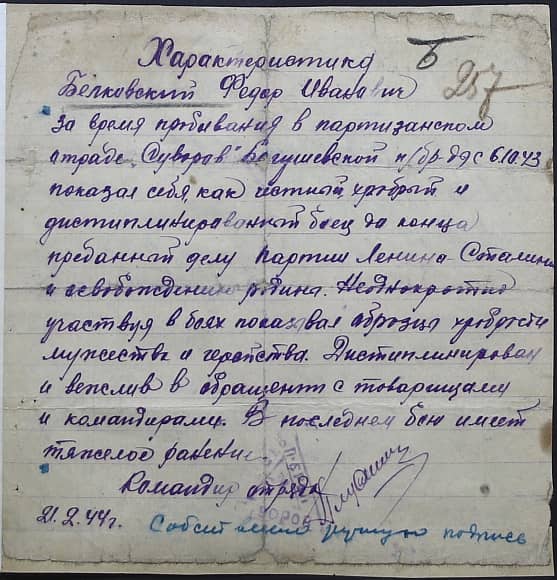 Характеристика
Б
257
Белковский Федор Иванович
за время пробивания в партизанском
отраде "Суворов" Богушевской п/бр.
показал себя, как честный, хробрый и
дистиплинированный боец до конца
преданный делу партии Ленина-Сталина
и освобождению родина. Неоднократно
участвуя в боях показывал образца хробрости
мужества и геройства. Дистиплинирован
и вежлив в обращении с товарищами
и командирами. В последнем бою имеет
тяжелое ранение.
Командир отряда
21.2.44г.
подпись